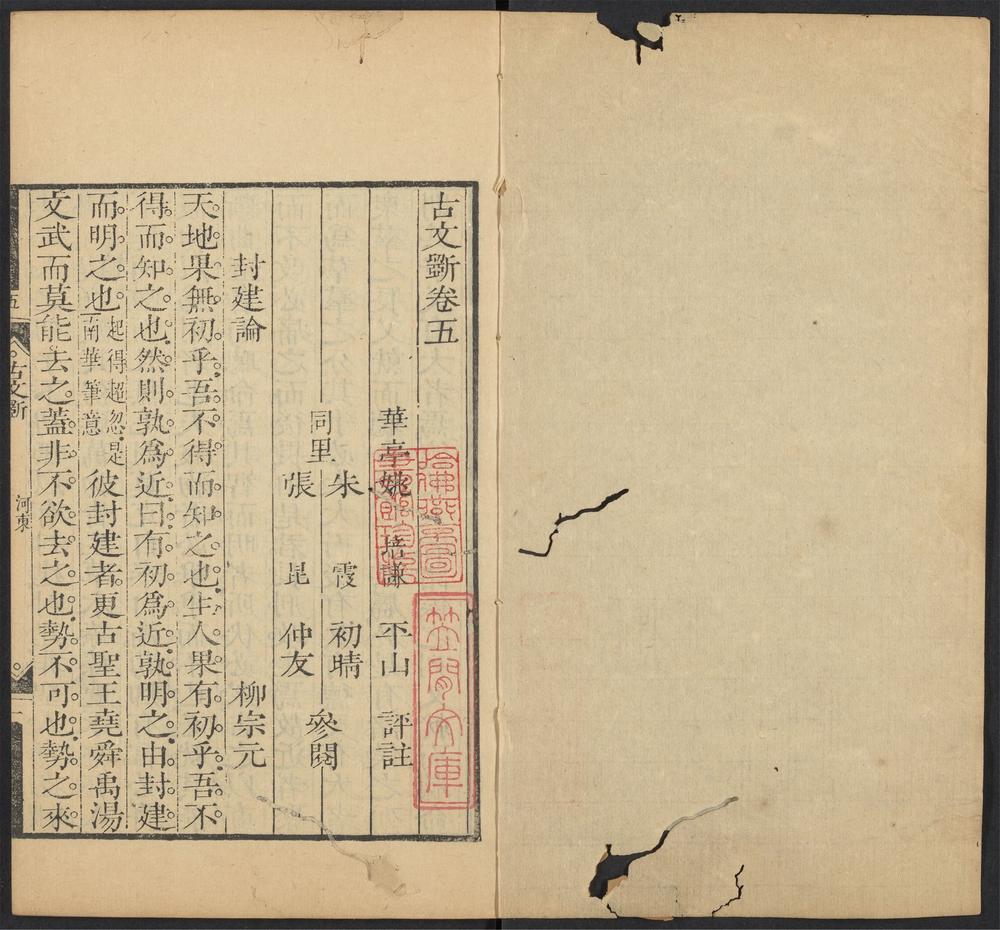 古文斷卷五
華亭姚 培謙 平山 評註
同里
朱 霞 初晴
張 昆 仲友
參閱
封建論 柳宗元
天地果無初乎吾不得而知之也生人果有初乎吾不
得而知之也然則孰爲近曰有初爲近孰明之由封建
而明之也
起得超忽是
南華筆意
彼封建者更古聖王堯舜禹湯
文武而莫能去之蓋非不欲去之也勢不可也勢之來
五
古文斷
河東
一
哈佛燕京
圖書館珍藏
文庫